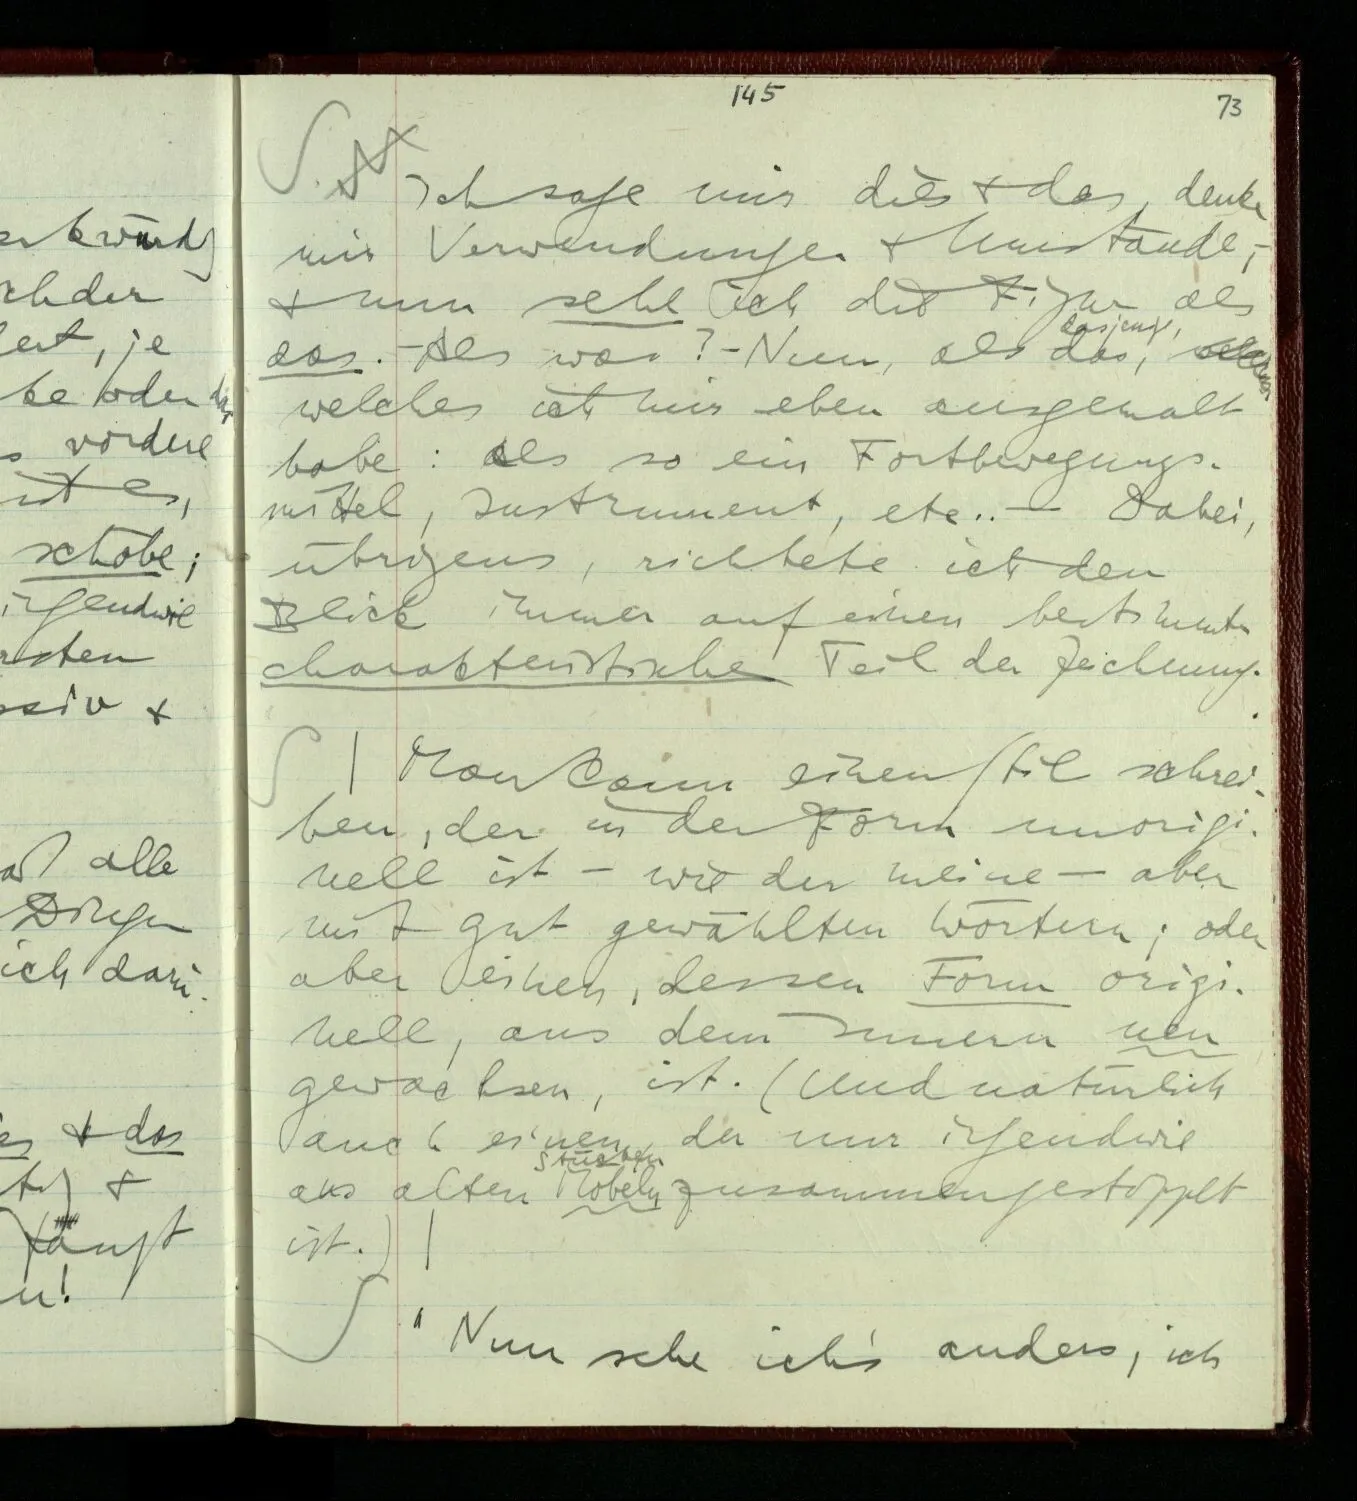 145
73
Ich sage mir dies & das, denke
mir Verwendungen & Umstände,
& nun sehe ich die Figur als
das. – Als was? – Nun, als das, dasjenige,
welches ich mir eben ausgemalt
habe: als so ein Fortbewegungs-
mittel, Instrument, etc.. – Dabei,
übrigens, richtete ich den
Blick immer auf einen bestimmten
charakteristischen Teil der Zeichnung.
| Man kann einen Stil schrei-
ben, der in der Form unorigi-
nell ist – wie der meine – aber
mit gut gewählten Wörtern; oder
aber einen, dessen Form origi-
nell, aus dem Innern neu
gewachsen, ist. (Und natürlich
auch einen, der nur irgendwie
Stücken
aus alten Möbeln zusammengestoppelt
ist.) |
"Nun sehe ich's anders, ich
chder
ert, je
ke oder das
s vordere
ist es,
schöbe;
irgendwie
rsten
ssiv &
alle
Dingen
ich darü-
& das
&
u!